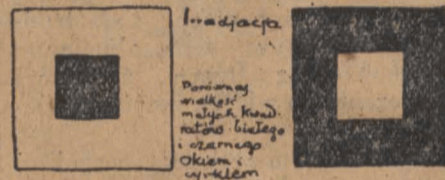 Irradjacja
Porównaj
wielkość
małych kwad-
ratów białego
i czarnego
okiem i
cyrklem